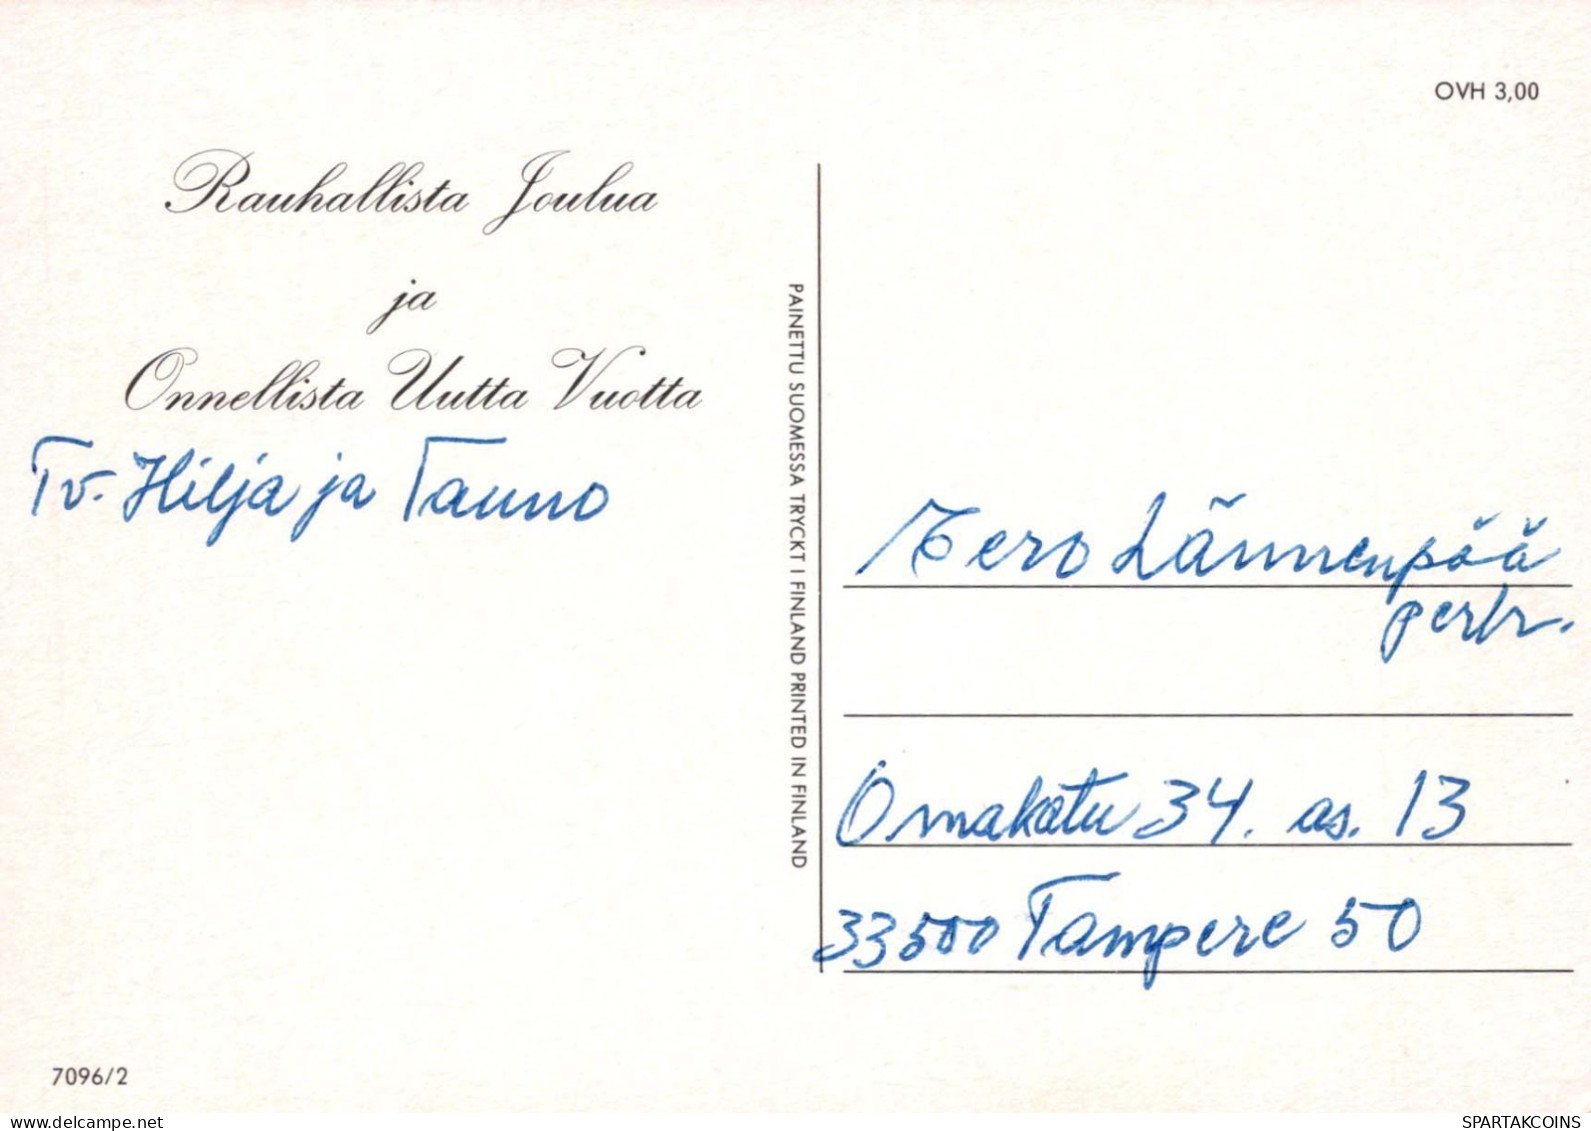 OVH 3,00
Rauhallista Joulua
ja
Onnellista Uutta Vuotta
Tv. Hilja ja Tauno
PAINETTU SUOMESSA TRYCKT I FINLAND PRINTED IN FINLAND
Eero Lännenpää
perh.
Omakatu 34. as. 13
33500 Tampere 50
7096/2
SPARTAKCOINS